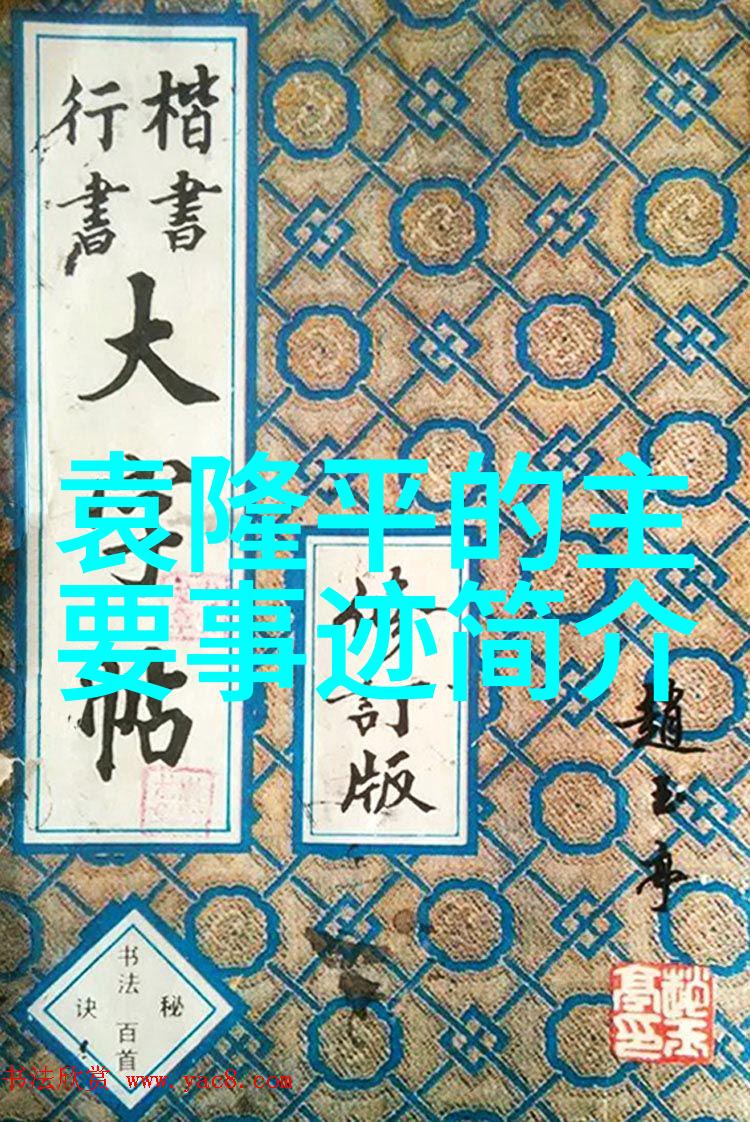 楷書
行書
大字帖
袁隆平的主
要事迹简介
修訂版
趙玉亭
书法百首
秘诀
书法欣赏 www.yac8.com